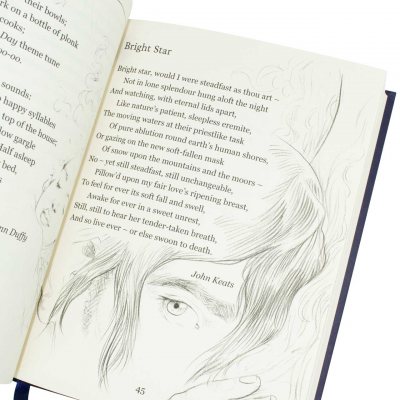 their bowls;
rk on a bottle of plonk
cooks;
Day theme tune
oo-oo.
sounds:
happy syllables
top of the house:
low gargle
Half asleep
bed,
nn Duffy
Bright Star
Bright star, would I were steadfast as thou art –
Not in lone splendour hung aloft the night
And watching, with eternal lids apart,
Like nature's patient, sleepless eremite,
The moving waters at their priestlike task
Of pure ablution round earth's human shores,
Or gazing on the new soft-fallen mask
Of snow upon the mountains and the moors –
No – yet still steadfast, still unchangeable,
Pillow'd upon my fair love's ripening breast,
To feel for ever its soft fall and swell,
Awake for ever in a sweet unrest,
Still, still to hear her tender-taken breath,
And so live ever – or else swoon to death.
John Keats
45